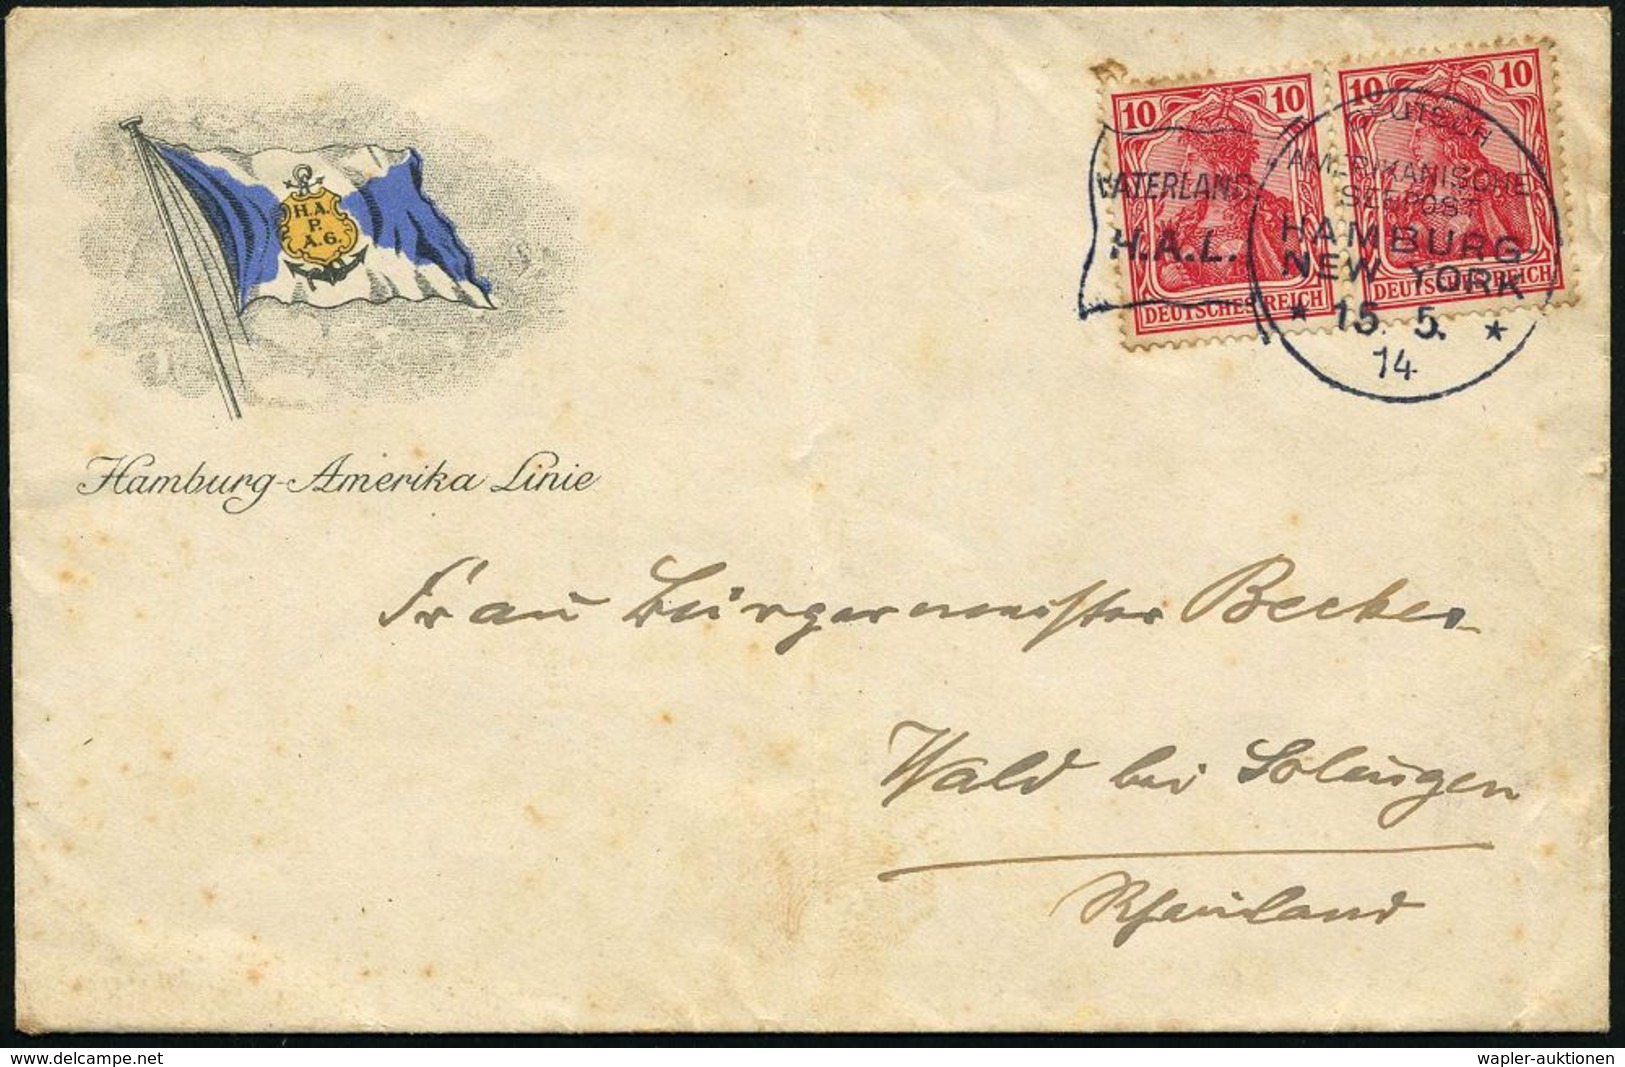 H.A.
P.
A.G.
Hamburg-Amerika Linie
10 10
DEUTSCHES REICH
10 10
DEUTSCHES REICH
VATERLAND
H.A.L.
DEUTSCH
AMERIKANISCHE
SEEPOST
HAMBURG
NEW YORK
* 15. 5. *
14
Frau Bürgermeister Becker
Wald bei Solingen
Rheinland
www.delcampe.net
wapler-auktionen